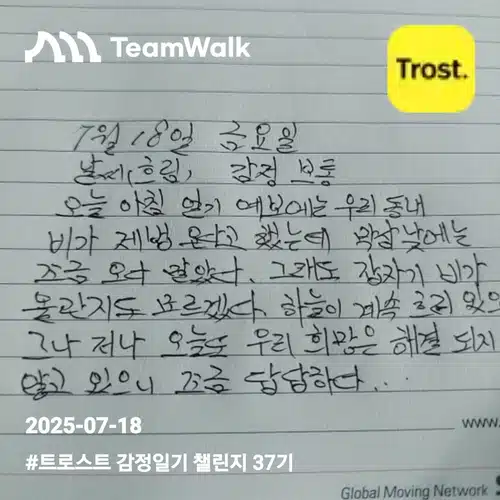 TeamWalk
Trost.
7월 18일 금요일
날씨(흐림), 감정 보통
오늘 아침 일기 예보에는 우리 동내
비가 제법 온다고 했는데 막상 낮에는
조금 오다 말았다. 그래도 갑자기 비가
올란지도 모르겠다. 하늘이 계속 흐리 있으
그나 저나 오늘도 우리 희망은 해결 되지
않고 있으니 조금 답답하다...
2025-07-18
www.
#트로스트 감정일기 챌린지 37기
Global Moving Network